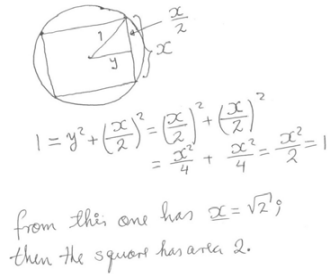 x/2
1
x
y
1 = y² + (x/2)² = (x/2)² + (x/2)²
= x²/4 + x²/4 = x²/2 = 1
from this one has x = √2;
then the square has area 2.